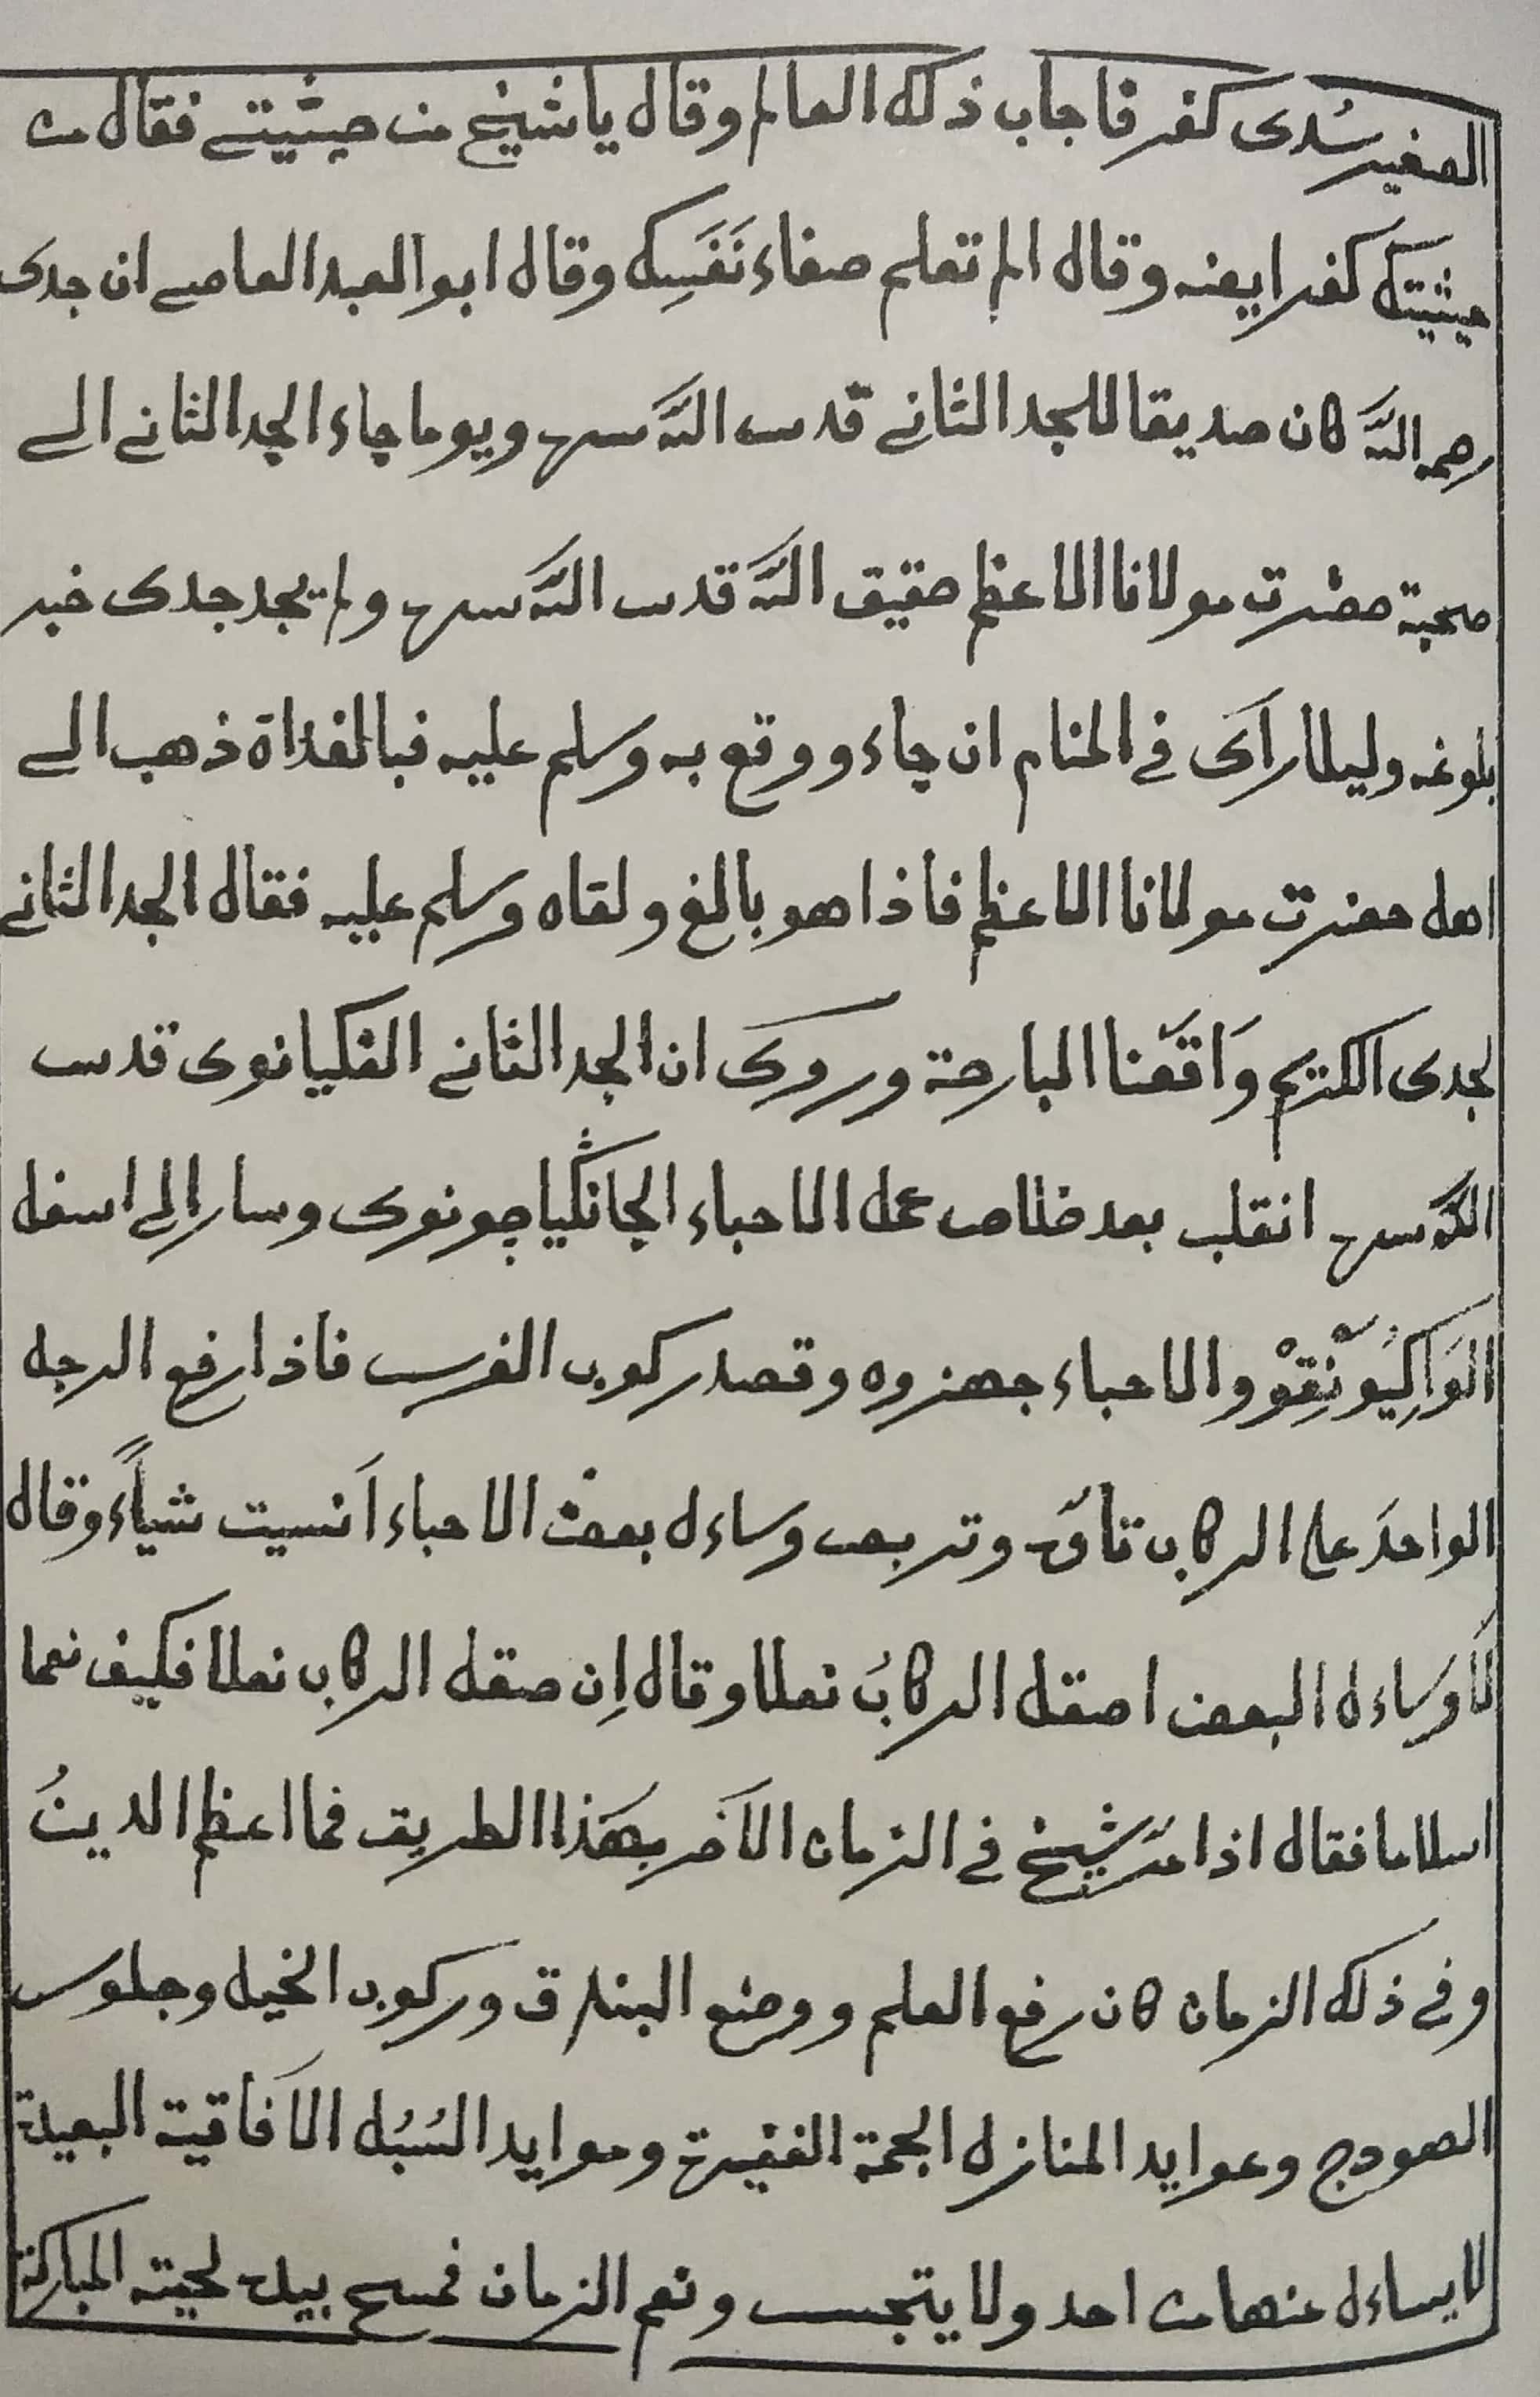 الصغير سُدى كفر فاجاب ذلك العالم وقال يا شيخ من حيثيتے فقال من
حيثيتك كفر ايضہ وقال الم تعلم صفاء نَفَسِك وقال ابو العبد العاصے ان جدى
رحمہ اللّٰہ كان صديقا للجد الثانے قدس اللّٰہ سرہ ويوما جاء الجد الثانے الے
صحبة حضرت مولانا الاعظم حقيق اللّٰہ قدس اللّٰہ سرہ ولم يجد جدى خبر
بلوغہ وليلا رآى فے المنام ان جاء ووقع بہ وسلم عليہ فبالغداة ذهب الے
اهل حضرت مولانا الاعظم فاذا هو بالغ ولقاه وسلم عليہ فقال الجد الثانے
لجدى الكريم وَاقَعْنا البارحة وروى ان الجد الثانے الفكيانوى قدس
اللّٰہ سرہ انقلب بعد خلاص عمل الاحباء الجانكياچونوى وسار الى اسفل
الوَاكِيُونْقِوْ والاحباء جهزوه وقصد ركوب الفرس فاذا رفع الرجل
الواحدَ على الركاب تأوّہ وتربص وساءل بعض الاحباء اَنسيت شيأً وقال
لَا وَساءل البعض اصقل الركابُ نعلا وقال اِن صقل الركاب نعلا فكيف نعما
اسلاما فقال اذا مرّ شيخ فے الزمان الآخر بهَذا الطريق فما اعظم الدينُ
وفے ذلك الزمان كان رفع العلم ووضع البندق وركوب الخيل وجلوس
الهودج وعوايد المنازل الجمة الغفيرة وموايد السُبُل الآفاقية البعيدة
لا يساءل عنها من احد ولا يتجسس ونعم الزمان فمسح بيدہ لحيتہ المباركة